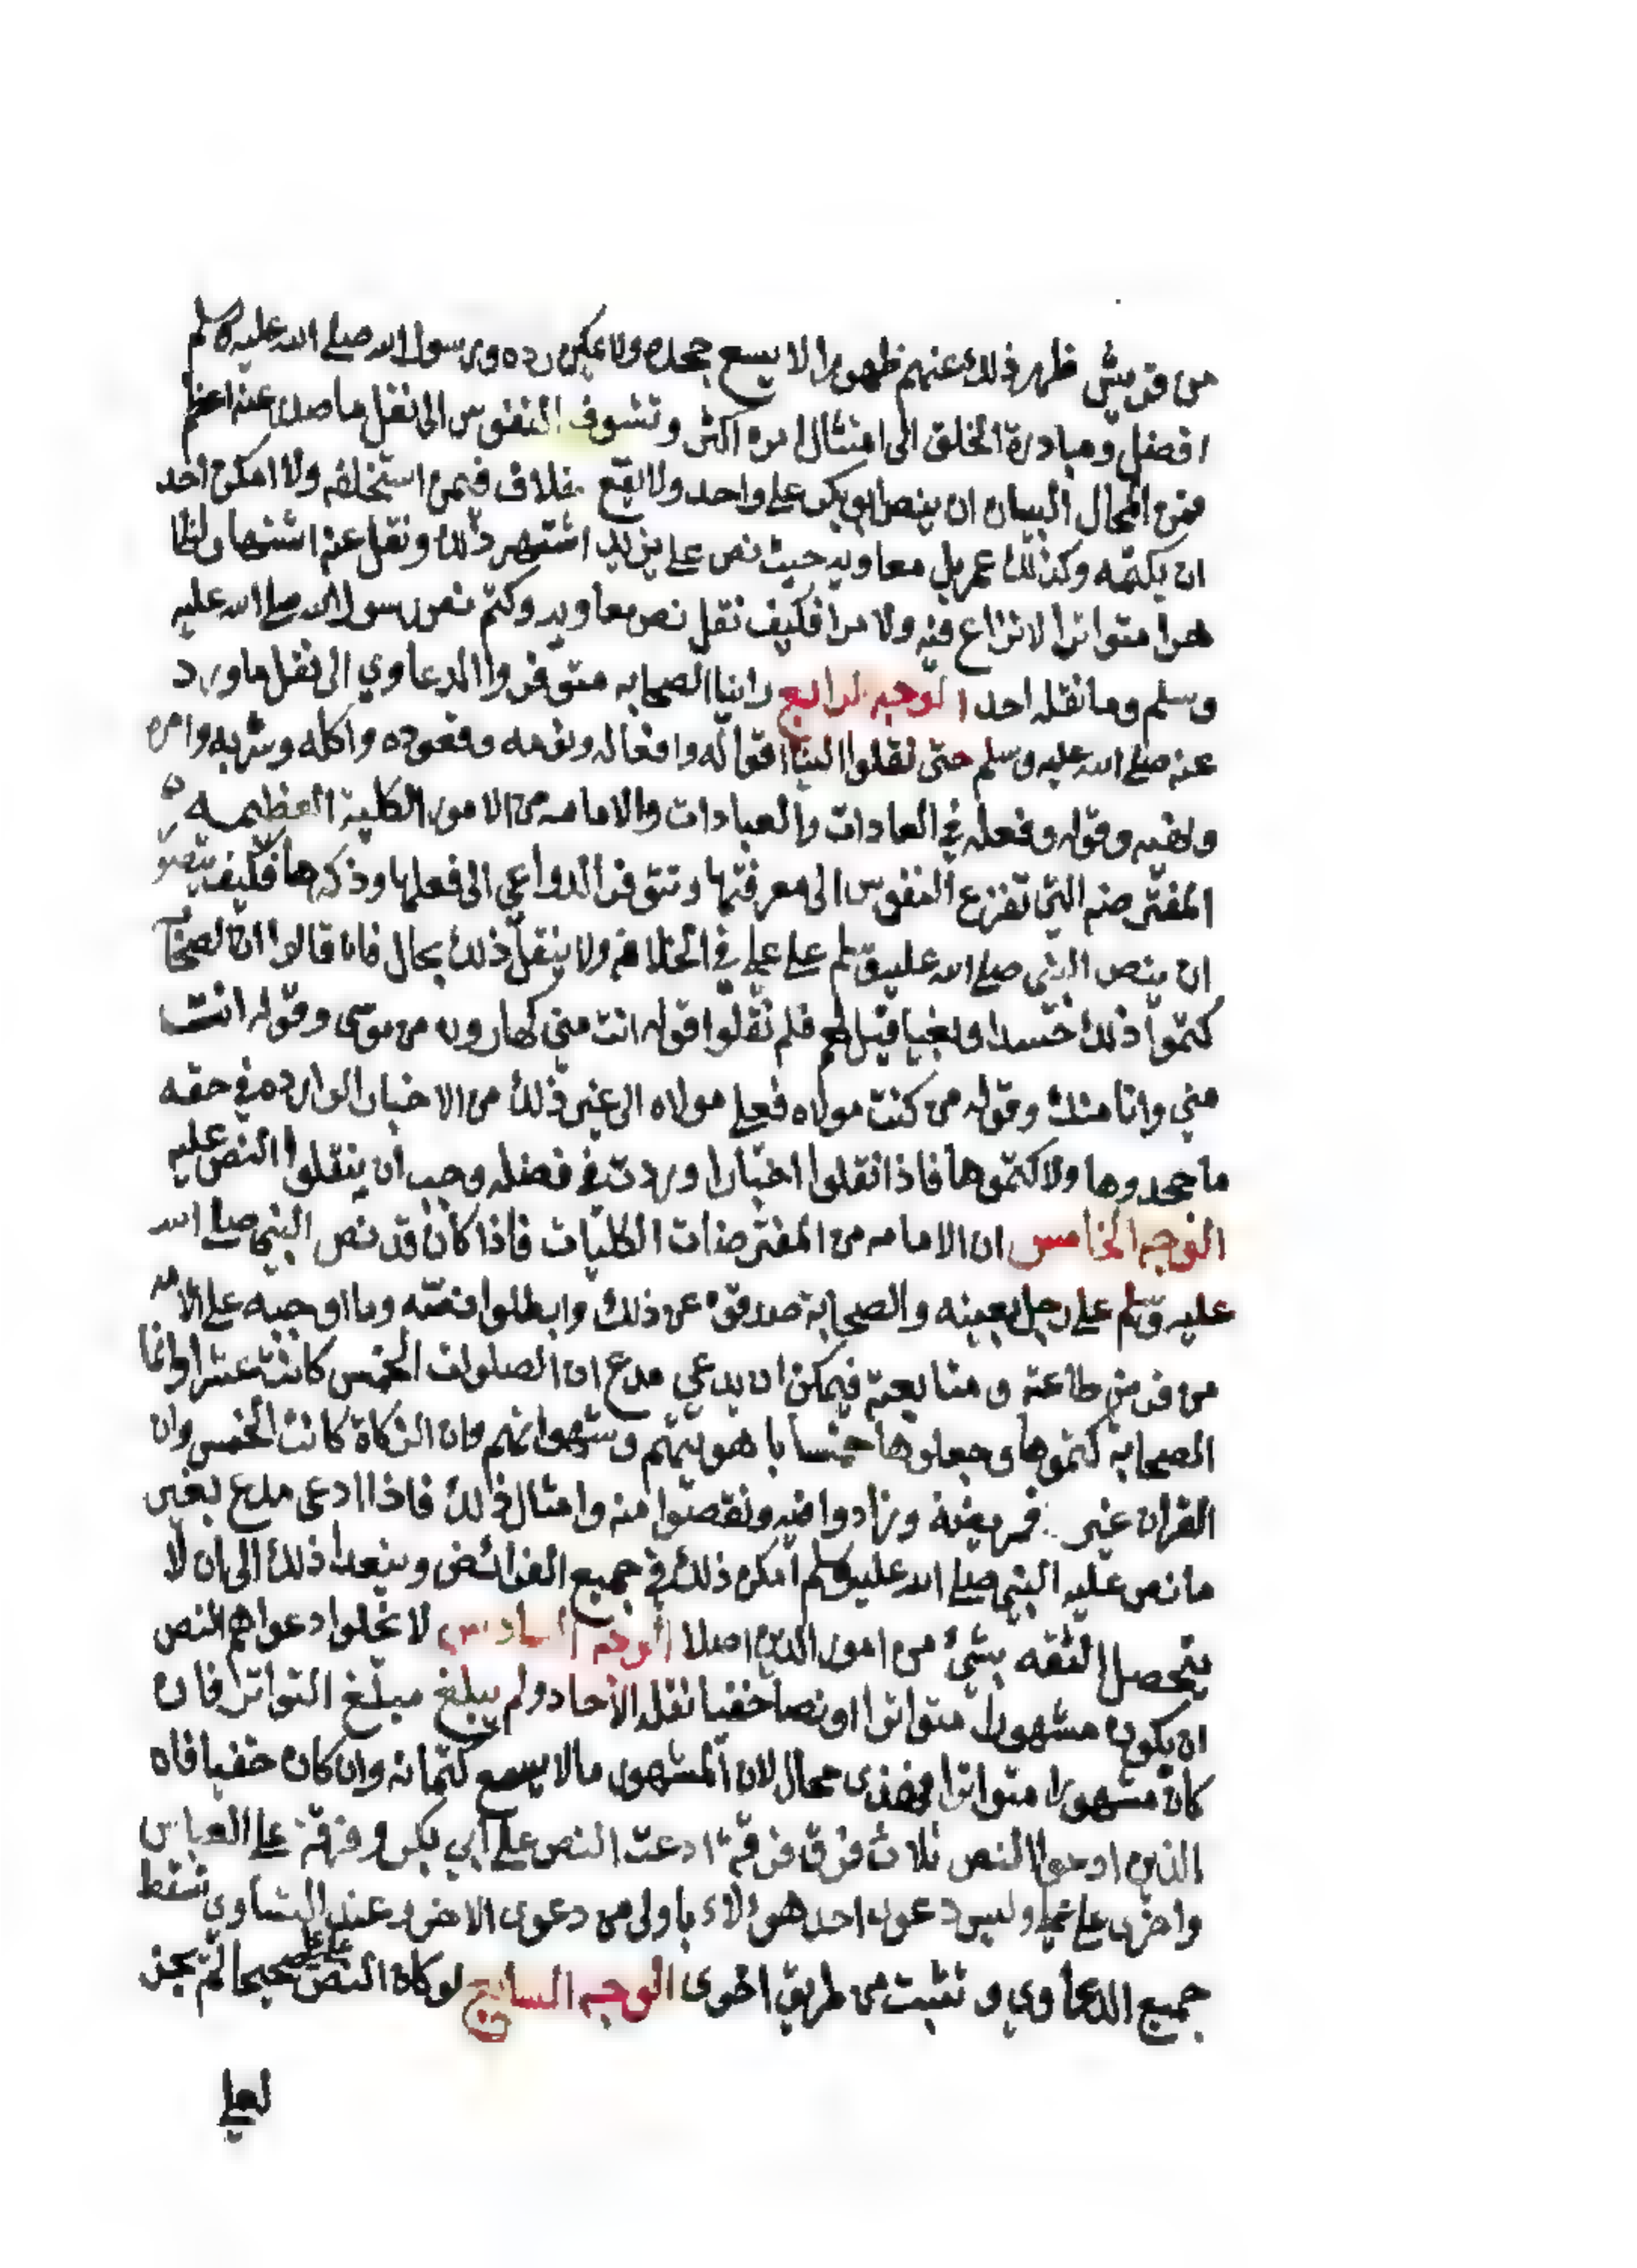 من قريش ظهر ذلك عنهم ظهورا لا يسع جحده ولا يمكن رده ورسول الله صلى الله عليه وسلم
افضل ومبادرة الخلق الى امتثال امره اكثر وتشوف النفوس الى نقل ما صدر عنه اعظم
فمن المحال البيان ان ينص ابو بكر على واحد ولا يقع خلاف فيمن استخلفه ولا امكن احد
ان يكتمه وكذلك عمر بل معاويه حيث نص على يزيد اشتهر ذلك ونقل عنه اشتهارا
متواترا لا نزاع فيه ولا مرا فكيف نقل نص معاويه وكتم نص رسول الله صلى الله عليه
وسلم وما نقله احد الوجه الرابع راينا الصحابه متوفروا الدعاوي الى نقل ما ورد
عنه صلى الله عليه وسلم حتى نقلوا الينا اقواله وافعاله ونومه وقعوده واكله وشربه وامره
ونهيه وقوله وفعله في العادات والعبادات والامامه من الامور الكلية العظيمه
المفترضه التي تفزع النفوس الى معرفتها وتتوفر الدواعي الى فعلها وذكرها فكيف يتصور
ان ينص النبي صلى الله عليه وسلم على علي في الخلافه ولا ينقل ذلك بحال فان قالوا ان الصحابة
كتموا ذلك حسدا وبغيا قيل لهم فلم نقلوا قوله انت مني كهارون من موسى وقوله انت
مني وانا منك وقوله من كنت مولاه فعلي مولاه الى غير ذلك من الاخبار الوارده في حقه
ما جحدوها ولا كتموها فاذا نقلوا اخبارا وردت في فضله وجب ان ينقلوا النص عليه
الوجه الخامس ان الامامه من المفترضات الكليات فاذا كان قد نص النبي صلى الله
عليه وسلم على رجل بعينه والصحابة صدفوه عن ذلك وابطلوا نصته وما اوجبه على الامه
من فرض طاعته ومتابعته فيمكن ان يدعي مدع ان الصلوات الخمس كانت عشرا وانما
الصحابة كتموها وجعلوها خمسا باهويتهم وشهواتهم وان الزكاة كانت الخمس وان
القران غير فريضة وزادوا فيه ونقصوا منه وامثال ذلك فاذا ادعى مدع بغير
ما نص عليه النبي صلى الله عليه وسلم امكن ذلك في جميع الفرائض ويتعدا ذلك الى ان لا
يتحصل الثقه بشيء من امور الدين اصلا الوجه السادس لا تخلوا دعواهم النص
ان يكون مشهورا متواترا او نصا خفيا نقله الاحاد ولم يبلغ مبلغ التواتر فان
كان مشهورا متواترا فهذى محال لان المشهور ما لا يسمع كتمانه وان كان خفيا فان
الذين ادعوا النص ثلاث فرق فرقة ادعت النص على ابي بكر وفرقة على العباس
واخرى على علي وليس دعوى احد هؤلاء باولى من دعوى الاخر وعند التساوي تسقط
جميع الدعاوي وتثبت من طريق اخرى الوجه السابع لو كان النص على علي صحيحا لم يجز
لعلي